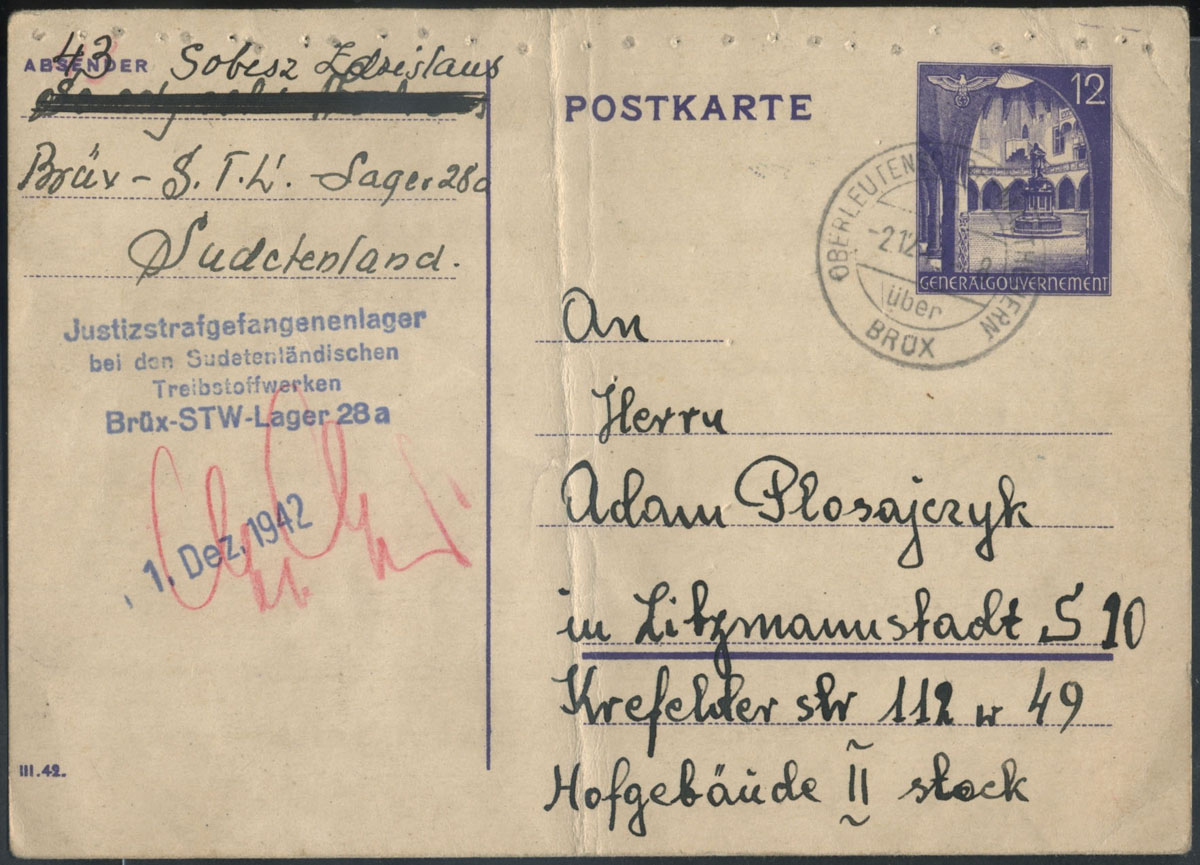 ABSENDER
43 Sobesz Zdzislaus
Brüx - S.T.L. - Lager 28a
Sudetenland.
Justizstrafgefangenenlager
bei den Sudetenländischen
Treibstoffwerken
Brüx-STW-Lager 28a
1. Dez. 1942
III.42.
POSTKARTE
12
GENERALGOUVERNEMENT
OBERLEUTEN
-2.12
über
BRÜX
An
Herrn
Adam Płosajczyk
in Litzmannstadt S 10
Krefelder str 112 w 49
Hofgebäude II stock